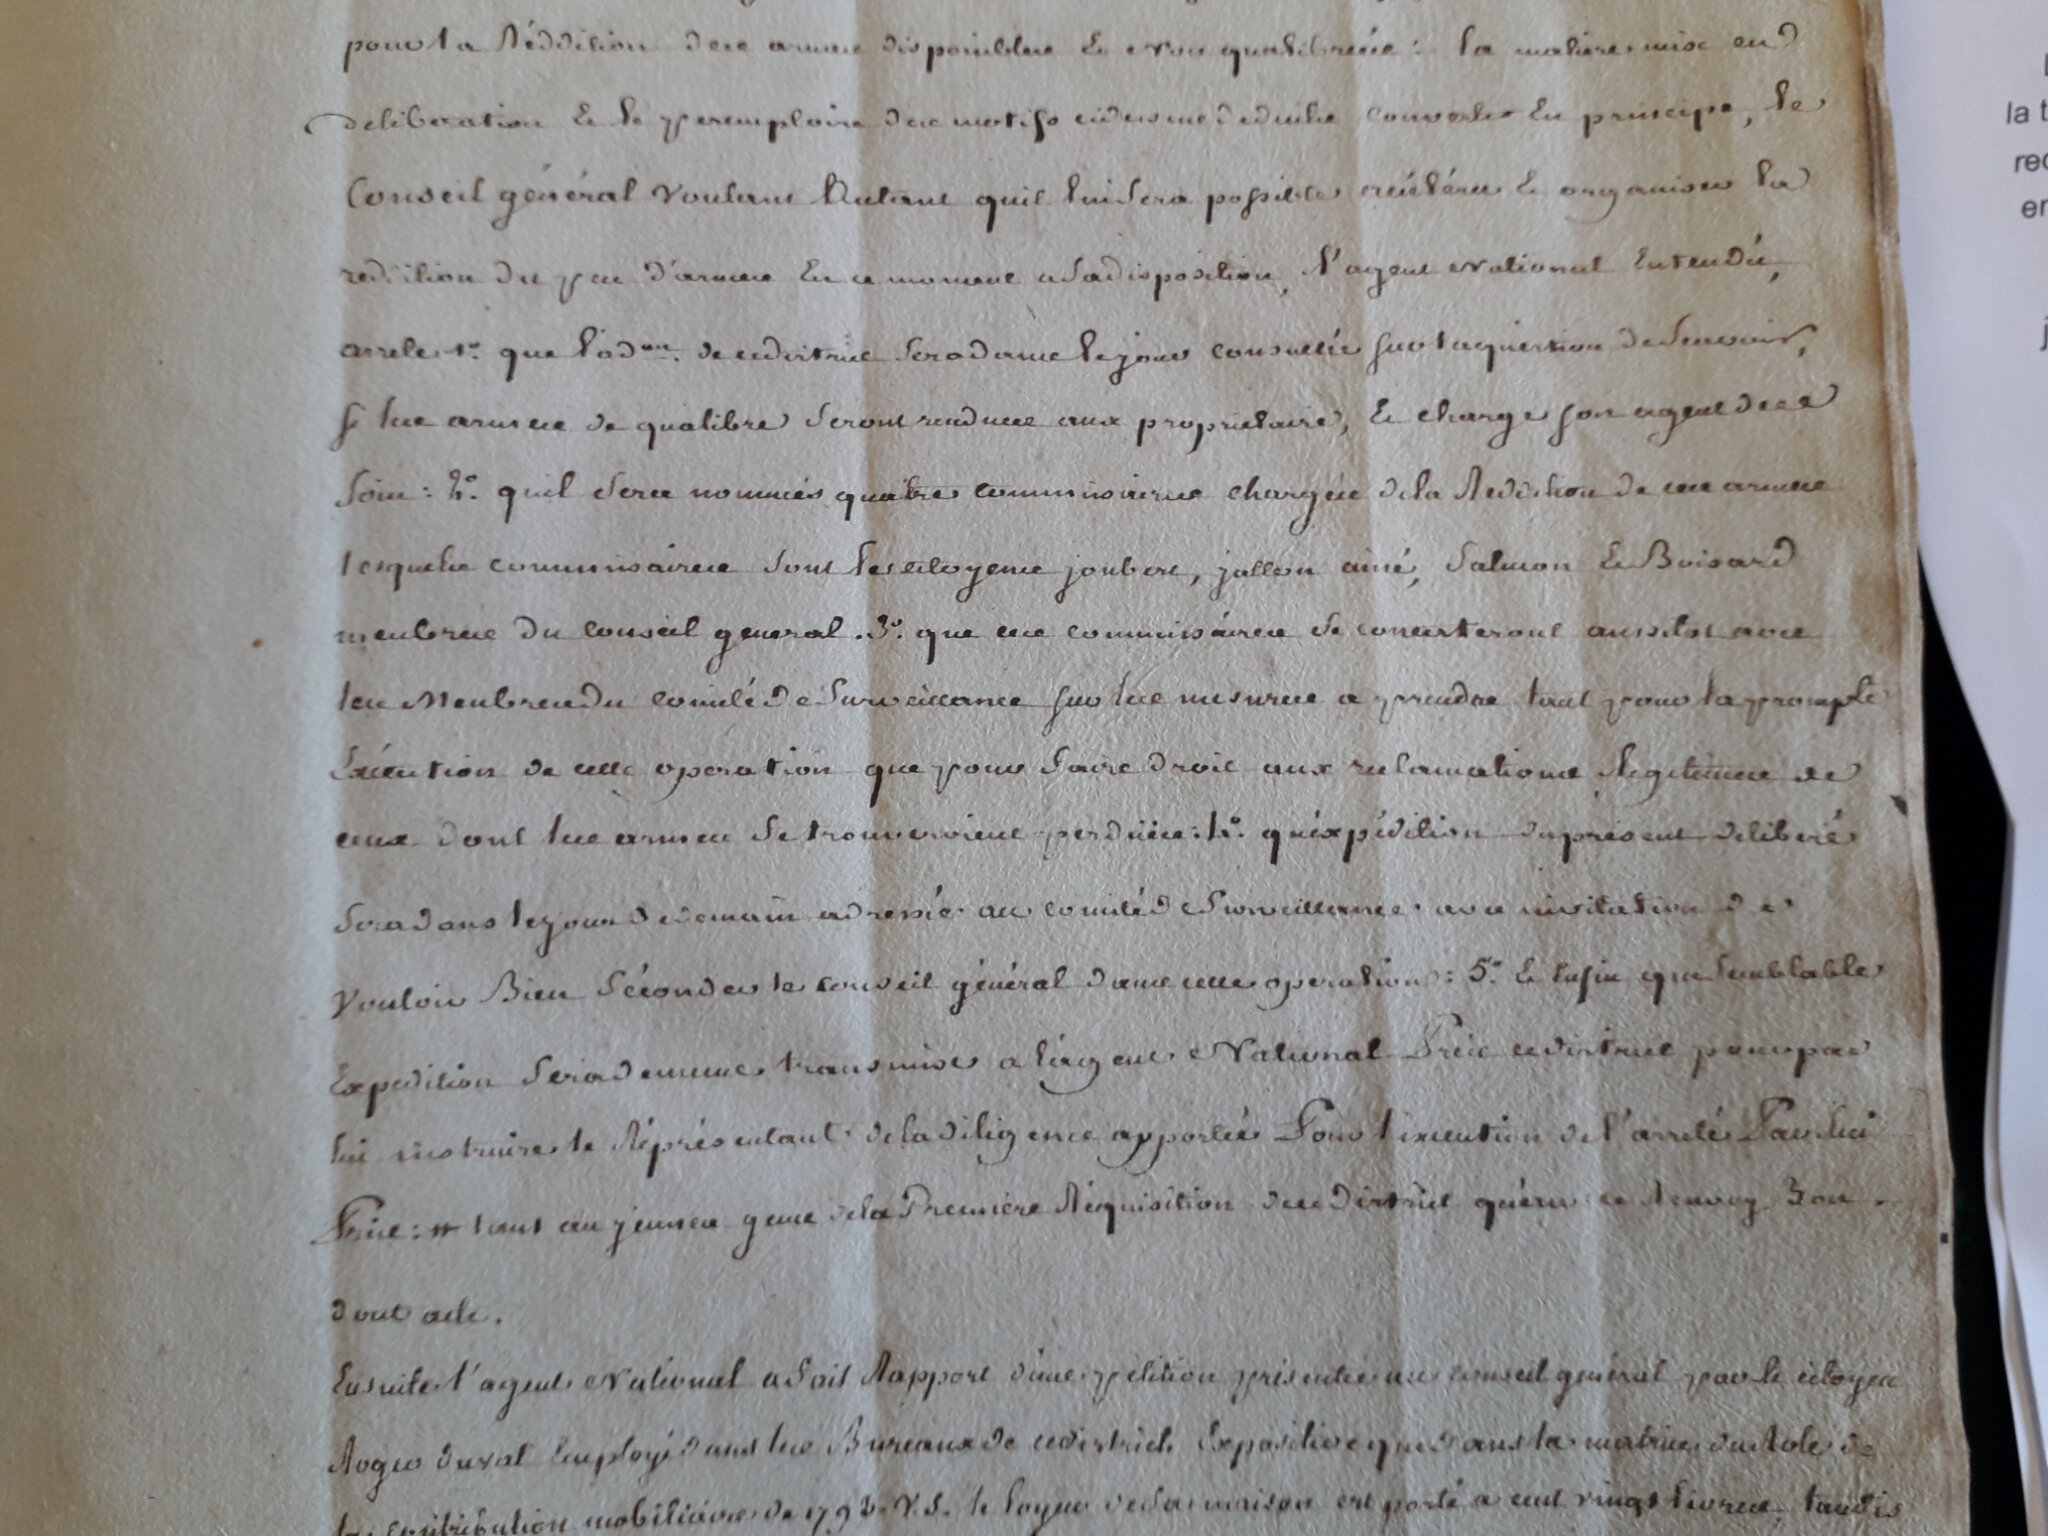 pour la Réddition des armes disponibles Et Non qualibreés : la matiere mise en
deliberation Et le peremptoire des motifs cidessus deduits convertis En principe, le
Conseil général voulant Autant quil lui sera possible accélérer Et organiser la
reddition du peu d'armes En ce moment a sa disposition, l'agent National Entendu,
arrete 1º. que l'adon. de ce district sera dans le jour consultée sur la question de Scavoir,
si les armes de qualibre seront rendues aux proprietaires, Et charge son agent de ce
soin : 2º. quil sera nommés quatre commissaires chargées de la Reddition de ces armes
lesquels commissaires sont les citoyens joubert, jallon ainé, Salmon Et Boisard
membres du conseil general . 3º. que ces commissaires se concerteront aussitot avec
les Membres du comité de Surveillance sur les mesures a prendre tant pour la prompte
Exécution de cette operation que pour faire droit aux reclamations légitimes de
ceux dont les armes se trouveroient perdües : 4º. qu'éxpédition du présent deliberé
sera dans le jour de demain adressée au comité de Surveillance avec invitation de
vouloir Bien séconder le conseil général dans cette operation : 5º. Et Enfin que semblable
Expedition sera de meme transmise a l'agent National Près ce district pour par
lui instruire le Réprésentant de la diligence apportée Pour l'execution de l'arrété Par lui
Pris : # tant au jeunes gens de la Premiere Réquisition de ce District qu'en ce Renvoy Bon.
dont acte.
Ensuite l'agent National a fait Rapport d'une pétition présentée au conseil général par le citoyen
Roger duval Employé dans les Bureaux de ce district. Expositive que dans la matrice du Role de
la contribution mobiliaire de 1793. V.S. le loyer de sa maison est porté a cent vingt livres, tandis
la t
rec
er
j